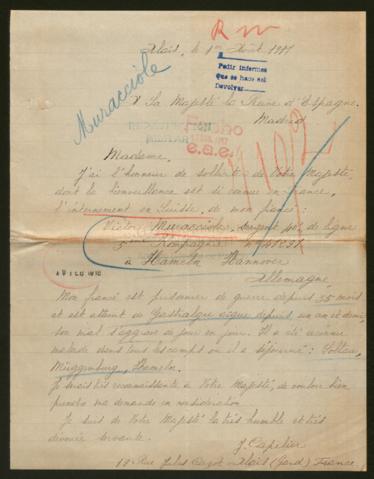 R
Alais, le 1er Août 1917
Pedir informes
Que se hace así
Devolver
Muracciole
A Sa Majesté la Reine d'Espagne.
Madrid
Fecho
Madame.
J'ai l'honneur de solliciter de Votre Majesté,
dont la bienveillance est si connue en France,
l'internement en Suisse, de mon fiancé:
Victor Muracciole, sergent 40e de ligne
5ème Kompagnie
à Hameln Hannover
Allemagne
Mon fiancé est prisonnier de guerre depuis 35 mois
et est atteint de Gastralgie aigue depuis un an et demi,
son mal s'aggrave de jour en jour. Il a été
malade dans tous les camps où il a séjourné: Soltau,
Müggenburg, Hameln.
Je serais très reconnaissante à Votre Majesté, de vouloir bien
prendre ma demande en considération.
Je suis de Votre Majesté la très humble et très
dévouée servante.
J. Capelier
Rue Jules Cazot Alais (Gard) France